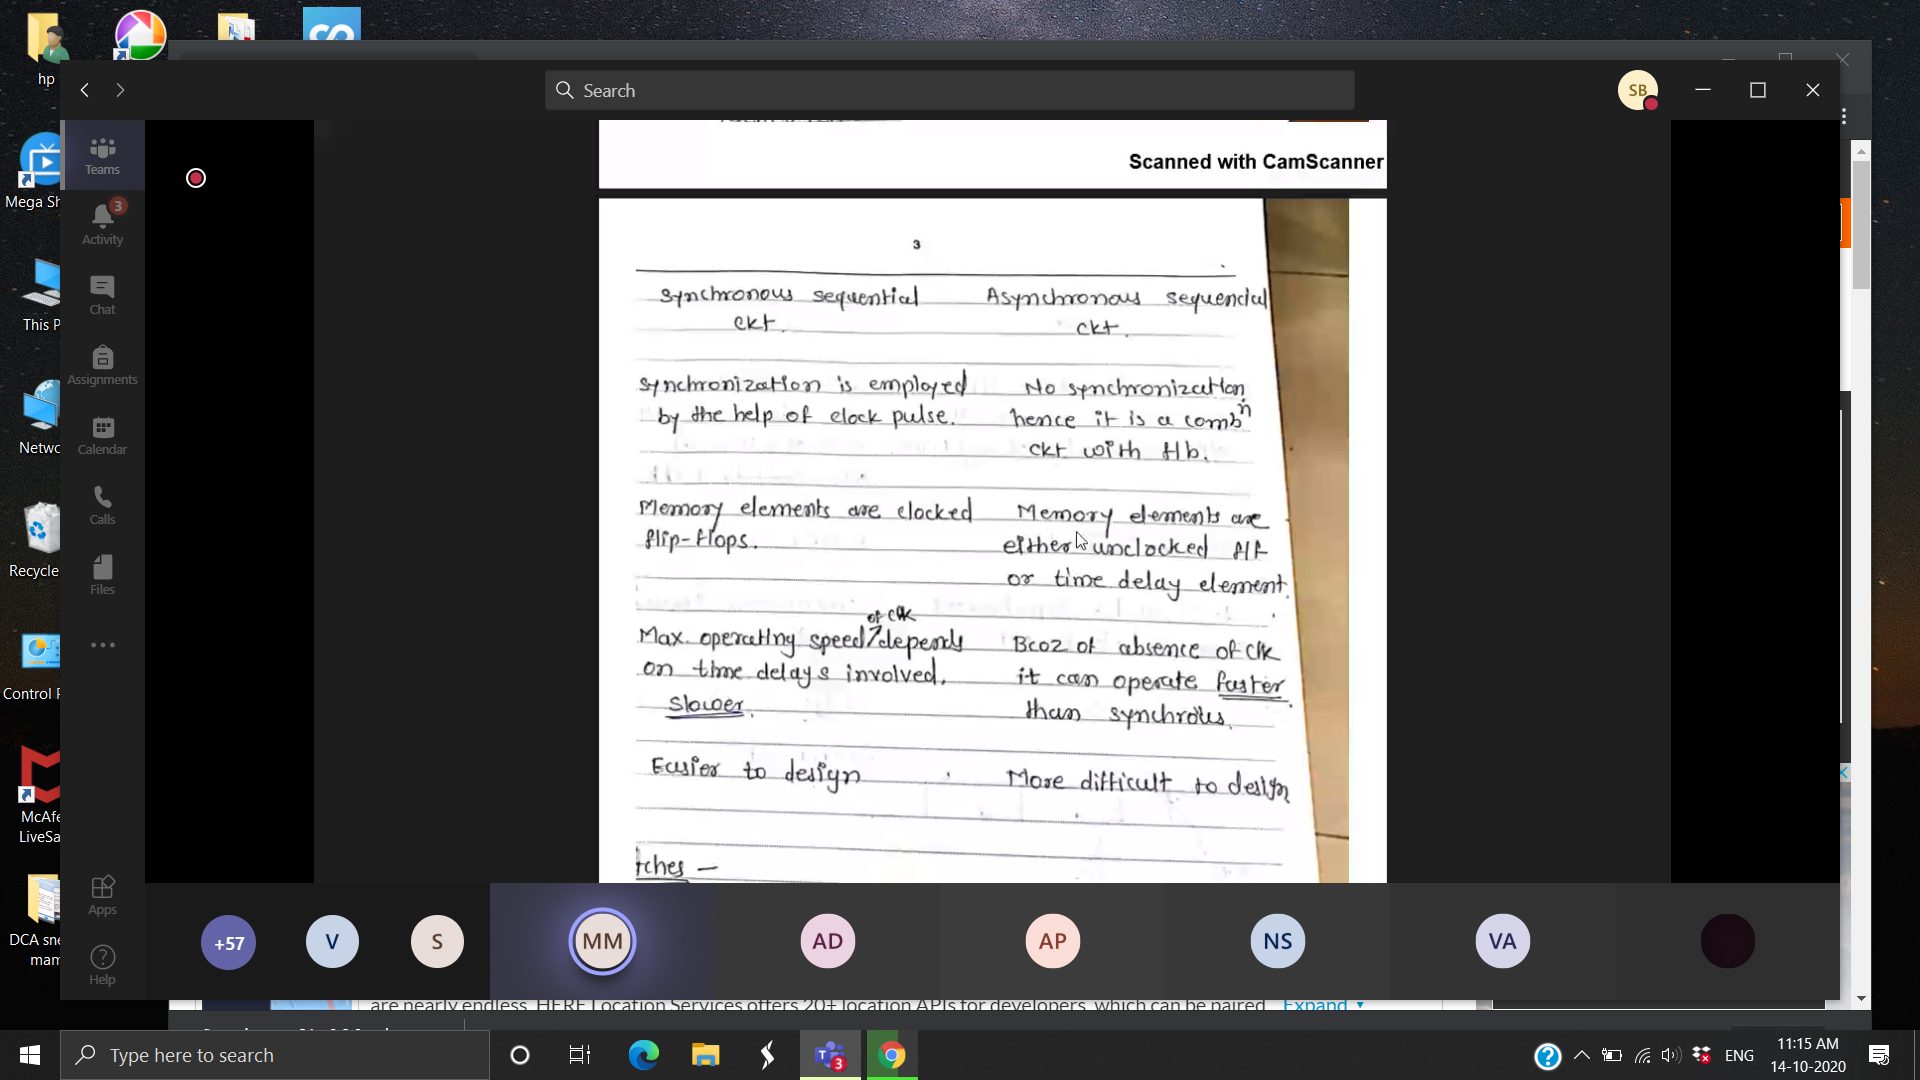 hp
Search
SB
Mega Sh
This P
Netwo
Recycle
Control P
McAfe
LiveSa
DCA sne
mam
Teams
3
Activity
Chat
Assignments
Calendar
Calls
Files
Apps
Help
Scanned with CamScanner
3
Synchronous sequential
ckt.
Asynchronous sequencial
ckt.
Synchronization is employed
by the help of clock pulse.
No synchronization
hence it is a combⁿ
ckt with f/b.
Memory elements are clocked
flip-flops.
Memory elements are
either unclocked f/f
or time delay element.
of clk
Max. operating speed depends
on time delays involved.
Slower.
Bcoz of absence of clk
it can operate faster
than synchrous.
Easier to design
More difficult to design
tches –
+57
V
S
MM
AD
AP
NS
VA
are nearly endless. HERE Location Services offers 20+ location APIs for developers, which can be paired
Expand
Type here to search
3
ENG
11:15 AM
14-10-2020